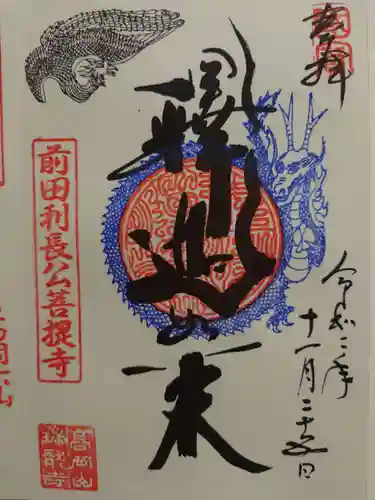 奉拝
令和二年
十一月二十五日
釋迦如来
前田利長公菩提寺
高岡山
瑞龍寺